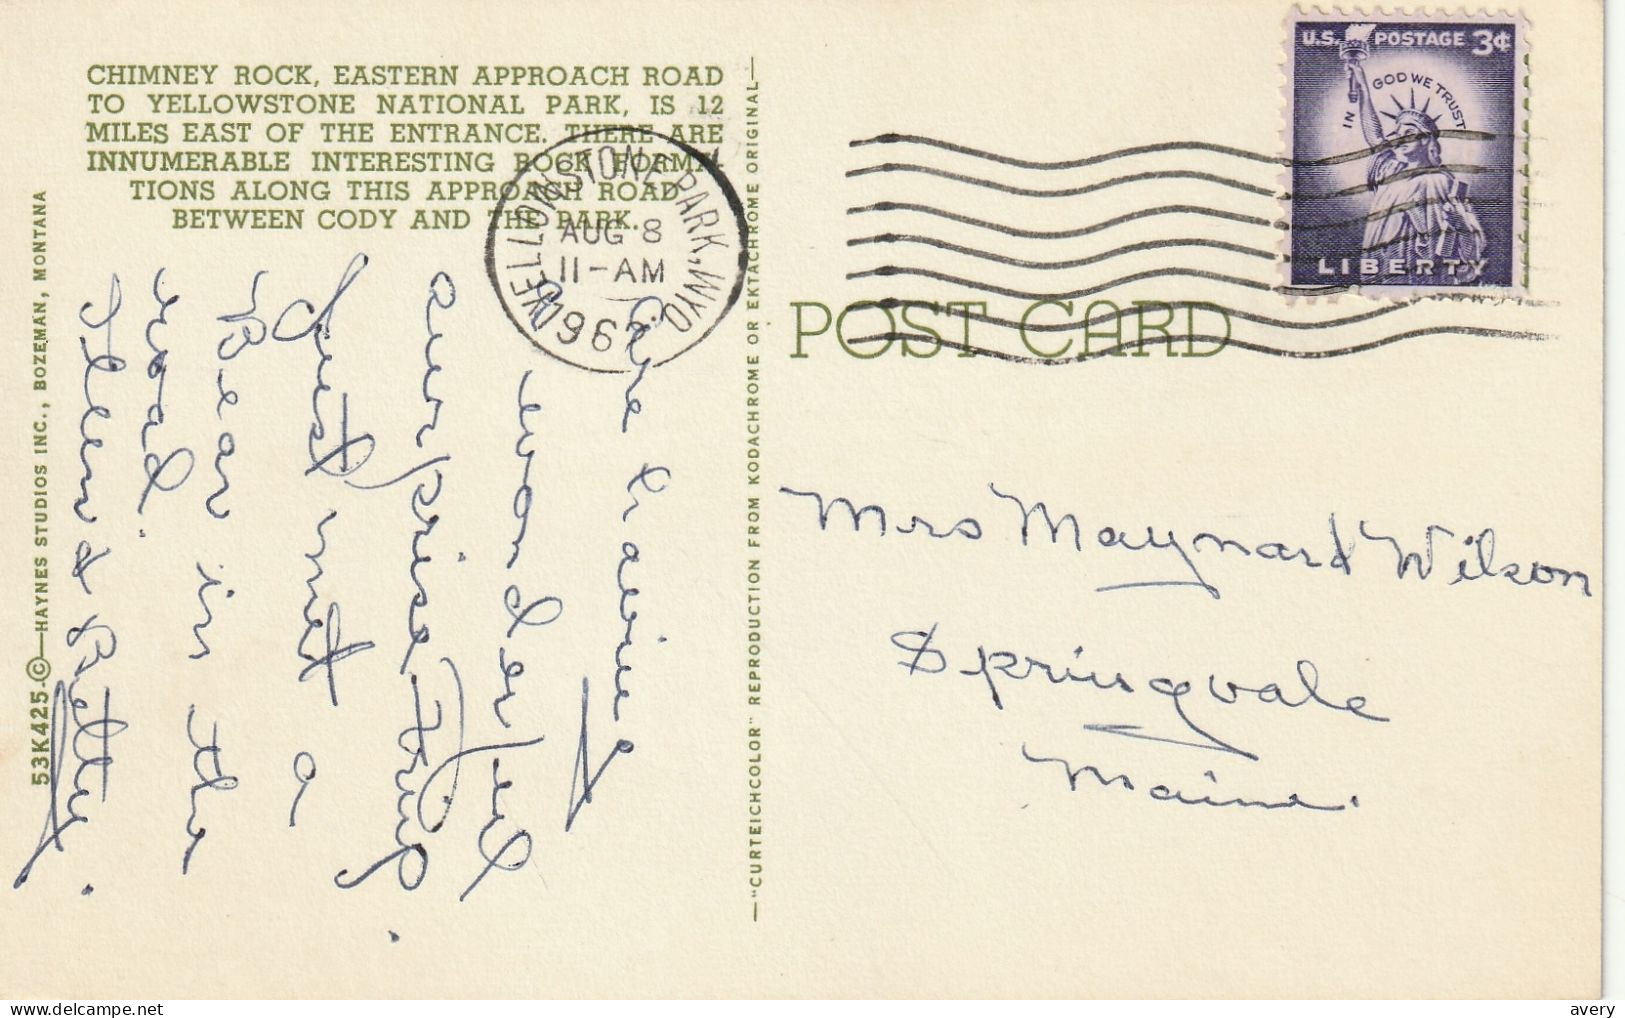 CHIMNEY ROCK, EASTERN APPROACH ROAD
TO YELLOWSTONE NATIONAL PARK, IS 12
MILES EAST OF THE ENTRANCE. THERE ARE
INNUMERABLE INTERESTING ROCK FORMA-
TIONS ALONG THIS APPROACH ROAD
BETWEEN CODY AND THE PARK.
53K425-©—HAYNES STUDIOS INC., BOZEMAN, MONTANA
—"CURTEICHCOLOR" REPRODUCTION FROM KODACHROME OR EKTACHROME ORIGINAL—
YELLOWSTONE PARK, WYO.
AUG 8
11-AM
1960
U.S. POSTAGE 3¢
IN GOD WE TRUST
LIBERTY
POST CARD
Are having
wonderful
surprise trip.
Just met a
Bear in the
road.
Mrs Maynard Wilson
Springvale
Maine.
avery